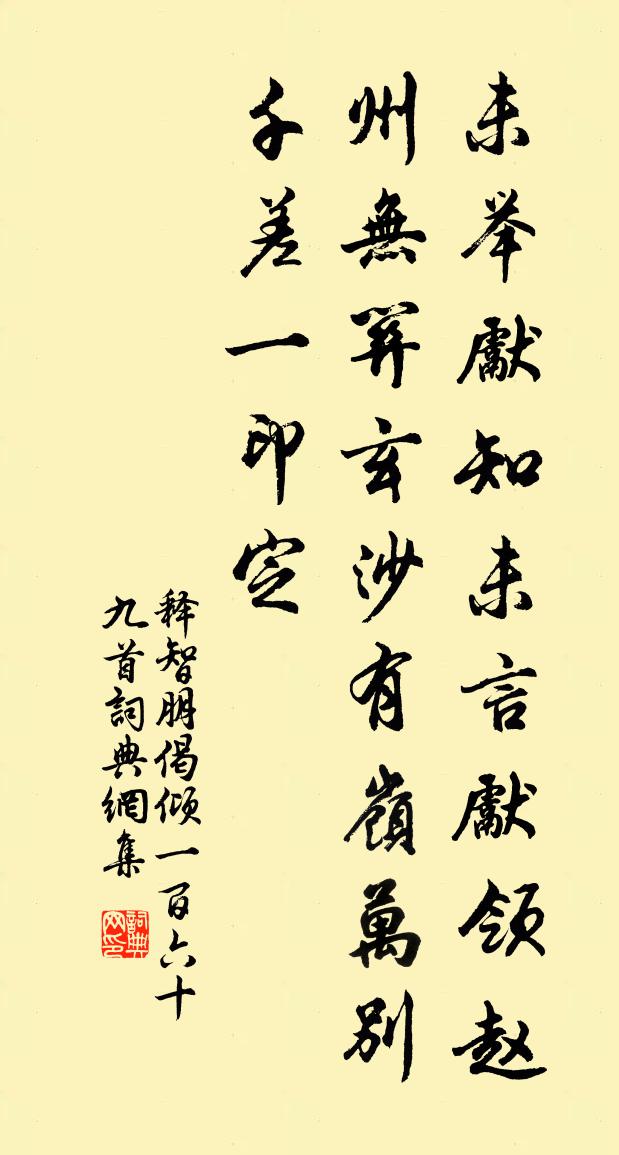 未举獻知未言獻领赵
州無笄玄沙有嶺萬別
千差一印定
释智朋偈倾一百六十
九首詞典網集
詞典网印